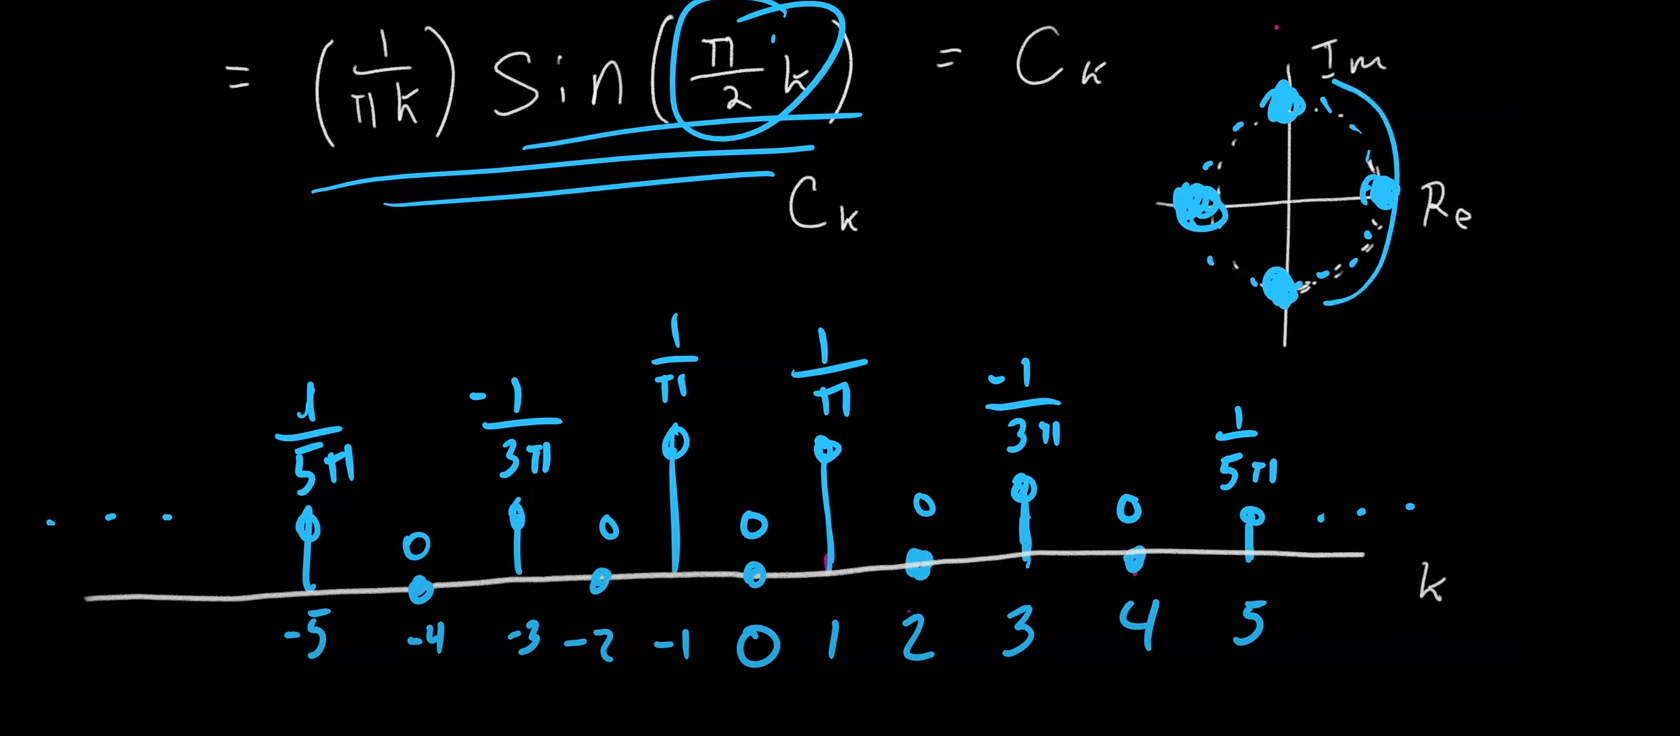 = (1/πk) Sin(π/2 k) = Ck
Im
Ck
Re
1/5π -1/3π 1/π 1/π -1/3π 1/5π
. . . 0 0 0 0 0 . . .
k
-5 -4 -3 -2 -1 0 1 2 3 4 5